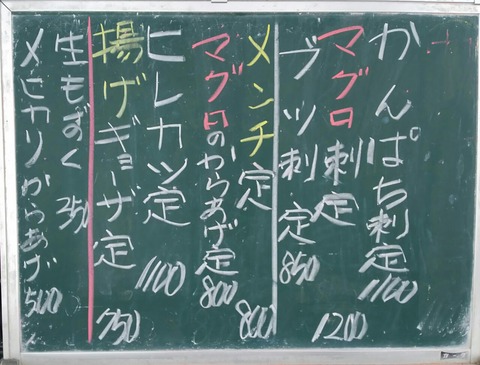 かんぱち刺定 1100
マグロ刺定 1200
ブツ刺定 850
メンチ定 800
マグロのからあげ定 800
ヒレカツ定 1100
揚げギョーザ定 750
生もずく 350
メヒカリからあげ 500